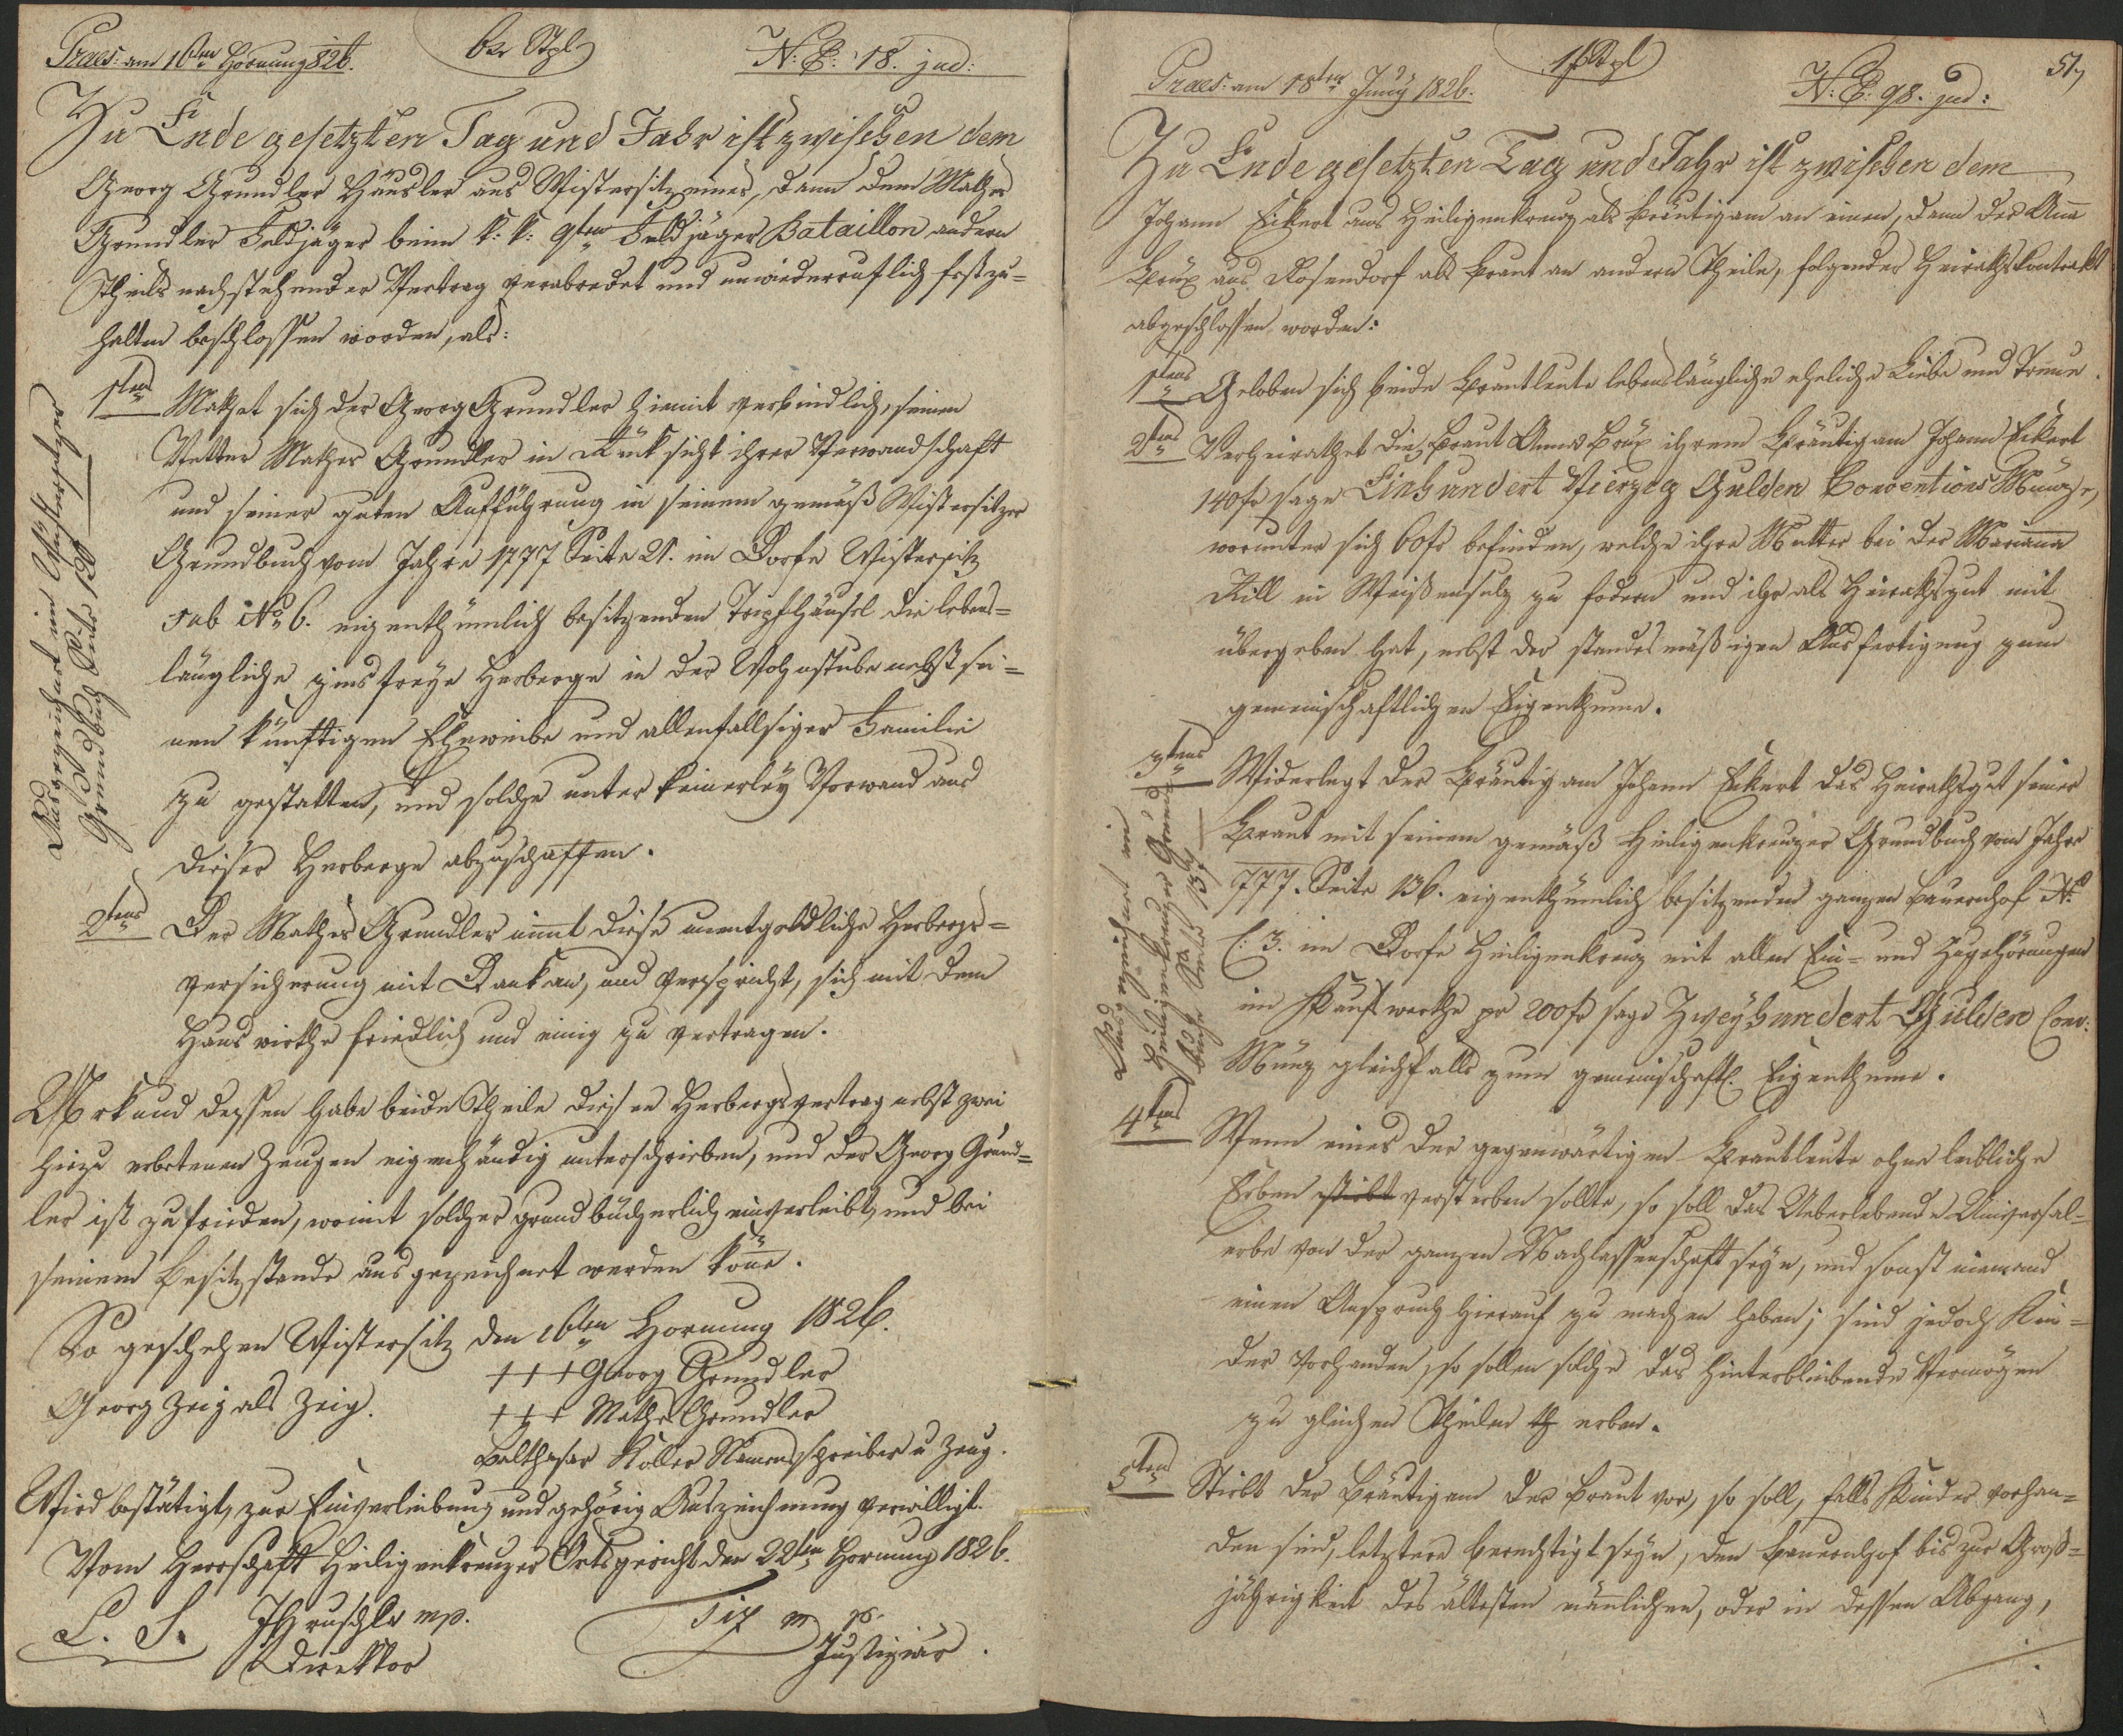 Praes: am 16ten Hornung 826.
6xr Stpl
N: E: 18. jud:
Zu Ende gesetzten Tag und Jahr ist zwischen dem
Georg Grundler Häusler aus Wistersitz eines, dann dem Mathes
Grundler Feldjäger beim k: k: 9ten Feldjäger Bataillon andern
Theils nachstehender Vertrag verabredet und unwiederruflich festzu=
halten beschlossen worden, als:
1tens Machet sich der Georg Grundler hiemit verbindlich, seinem
Vetter Mathes Grundler in Rücksicht ihrer Verwandschaft
und seiner guten Aufführung in seinem gemäß Wistersitzer
Grundbuch vom Jahre 1777 Seite 21. im Dorfe Wistersitz
sub No 6. eigenthümlich besitzenden Tripfhäusel die lebens=
längliche zinsfreye Herberge in der Wohnstube nebst sei=
nen künftigen Eheweibe und allenfallsiger Familie
zu gestatten, und solche unter keinerley Vorwand aus
dieser Herberge abzuschaffen.
Ausgezeichnet im Wistersitzer
Grundbuch Seite
2tens Der Mathes Grundler nimt diese unentgeldliche Herbergs=
versicherung mit Dank an, und verspricht, sich mit dem
Hauswirthe friedlich und einig zu vertragen.
Urkund dessen habe beide Theile diesen Herbergsvertrag nebst zwei
hiezu erbetenen Zeugen eigenhändig unterschrieben, und der Georg Grund=
ler ist zufrieden, womit solcher grundbücherlich einverleibt, und bei
seinem Besitzstande ausgezeichnet werden köne.
So geschehen Wistersitz den 16ten Hornung 1826.
+++ Georg Grundler
Georg Zeig als Zeig.
+++ Mathes Grundler
Balthasar Koller Namensschreiber u Zeug.
Wird bestätigt, zur Einverleibung und gehörig Auszeichnung verwilligt.
Vom Herrschaft Heiligenkreuzer Ortsgericht den 22ten Hornung 1826.
L. S.
Hruschka mp.
Direktor
Tix mp
Justiziär.
Praes: am 18ten Juny 1826.
1f Stpl
N: E: 98. jud:
51
Zu Ende gesetzten Tag und Jahr ist zwischen dem
Johann Eckert aus Heiligenkreuz als Bräutigam an einen, dann der Ana
Brux aus Rosendorf als Braut an andern Theile, folgender Heirathskontrakt
abgeschlossen worden:
1tens Geloben sich beide Brautleute lebenslängliche eheliche Liebe und Treue.
2tens Verheirathet die Braut Anna Brux ihrem Bräutigam Johann Eckert
140 fr sage Einhundert Vierzig Gulden Conventions Münze,
worunter sich 60 fr befinden, welche ihre Mutter bei der Mariana
Kill in Weißensulz zu fodern und ihr als Heirathsgut mit
übergeben hat, nebst der standesmäßigen Ausfertigung zum
gemeinschaftlichen Eigenthume.
3tens Widerlegt der Bräutigam Johann Eckert das Heirathsgut seiner
Braut mit seinem gemäß Heiligenkreuzer Grundbuch vom Jahre
777. Seite 136. eigenthümlich besitzenden ganzen Bauernhof No
C: 3. im Dorfe Heiligenkreuz mit allen Ein= und Zugehörungen
im Kaufswerthe pr 200 fr sage Zweyhundert Gulden Conv:
Münz gleichfalls zum gemeinschaftl. Eigenthume.
Ausgezeichnet im
Heiligenkreuzer Grund=
buche Seite 137
4tens Wenn eines der gegenwärtigen Brautleute ohne leibliche
Erben stirbt versterben sollte, so soll das Ueberlebende Universal=
erbe von der ganzen Nachlassenschaft seyn, und sonst niemand
einen Anspruch hierauf zu machen haben; sind jedoch Kin=
der vorhanden, so sollen solche das hinterbleibende Vermögen
zu gleichen Theilen th erben.
5tens Stirbt der Bräutigam der Braut vor, so soll, falls Kinder vorhan=
den sind, letztere berechtigt seyn, den Bauernhof bis zur Groß=
jährigkeit des ältesten mänlichen, oder in dessen Abgang,